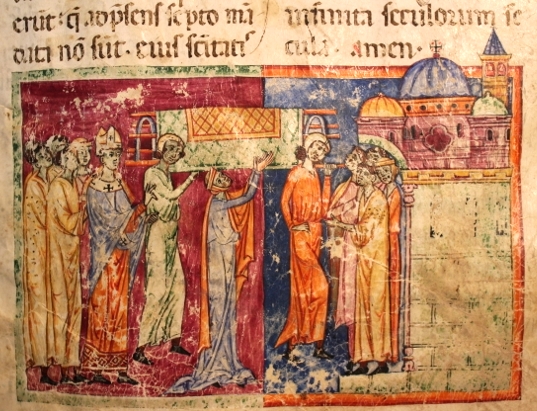 erũt: q̃ adp̃sens sc̃pto mã
dati nõ sũt. eius sc̃itatis
infinita seculorum se
cula. Amen.